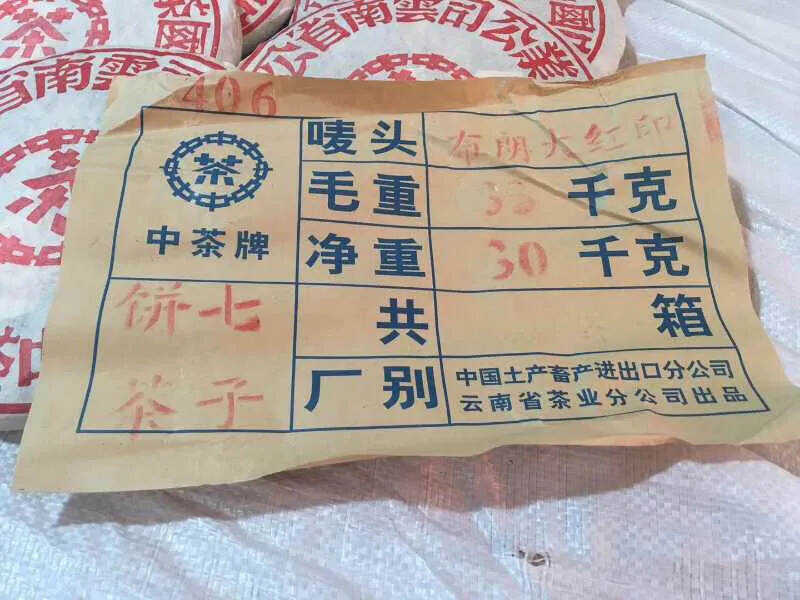 茶
省南雲司公業
國
省南雲司公
茶
406
茶
中茶牌
唛头 布朗大红印
毛重 千克
净重 30 千克
饼七
茶子
共 箱
厂别 中国土产畜产进出口分公司
云南省茶业分公司出品